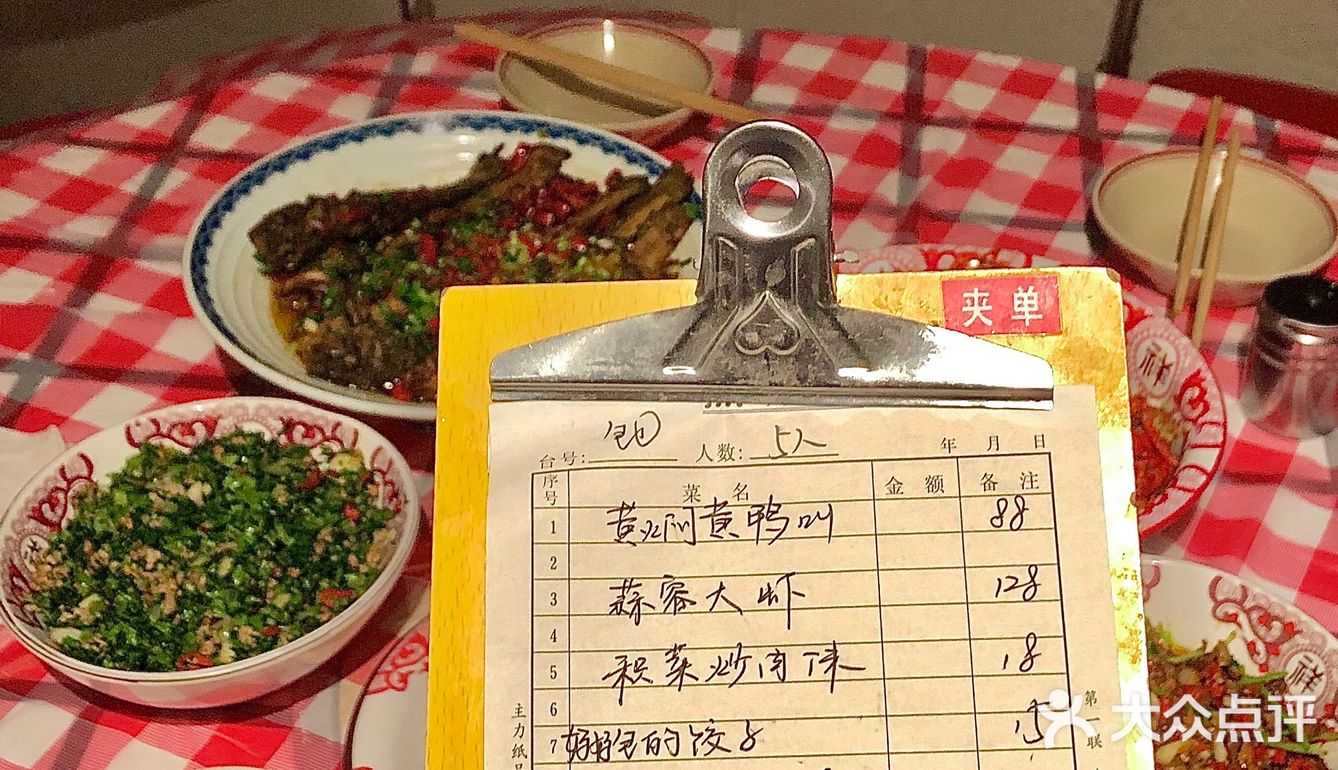 夹单
台号: 包 人数: 5人 年 月 日
序号 菜名 金额 备注
1 黄焖黄鸭叫 88
2
3 蒜蓉大虾 128
4
5 积菜炒肉沫 18
6
7 妈妈包的饺子 15
主力纸品
第一联
大众点评
祥